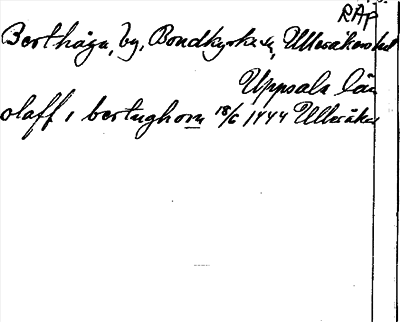 RAP
Berthåga, by, Bondkyrka sn, Ulleråkers hd
Uppsala län
olaff i bertughom 18/6 1444 Ulleråker